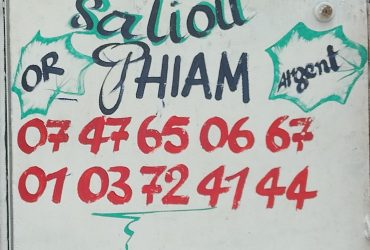 Saliou
OR PHIAM Argent
07 47 65 06 67
01 03 72 41 44